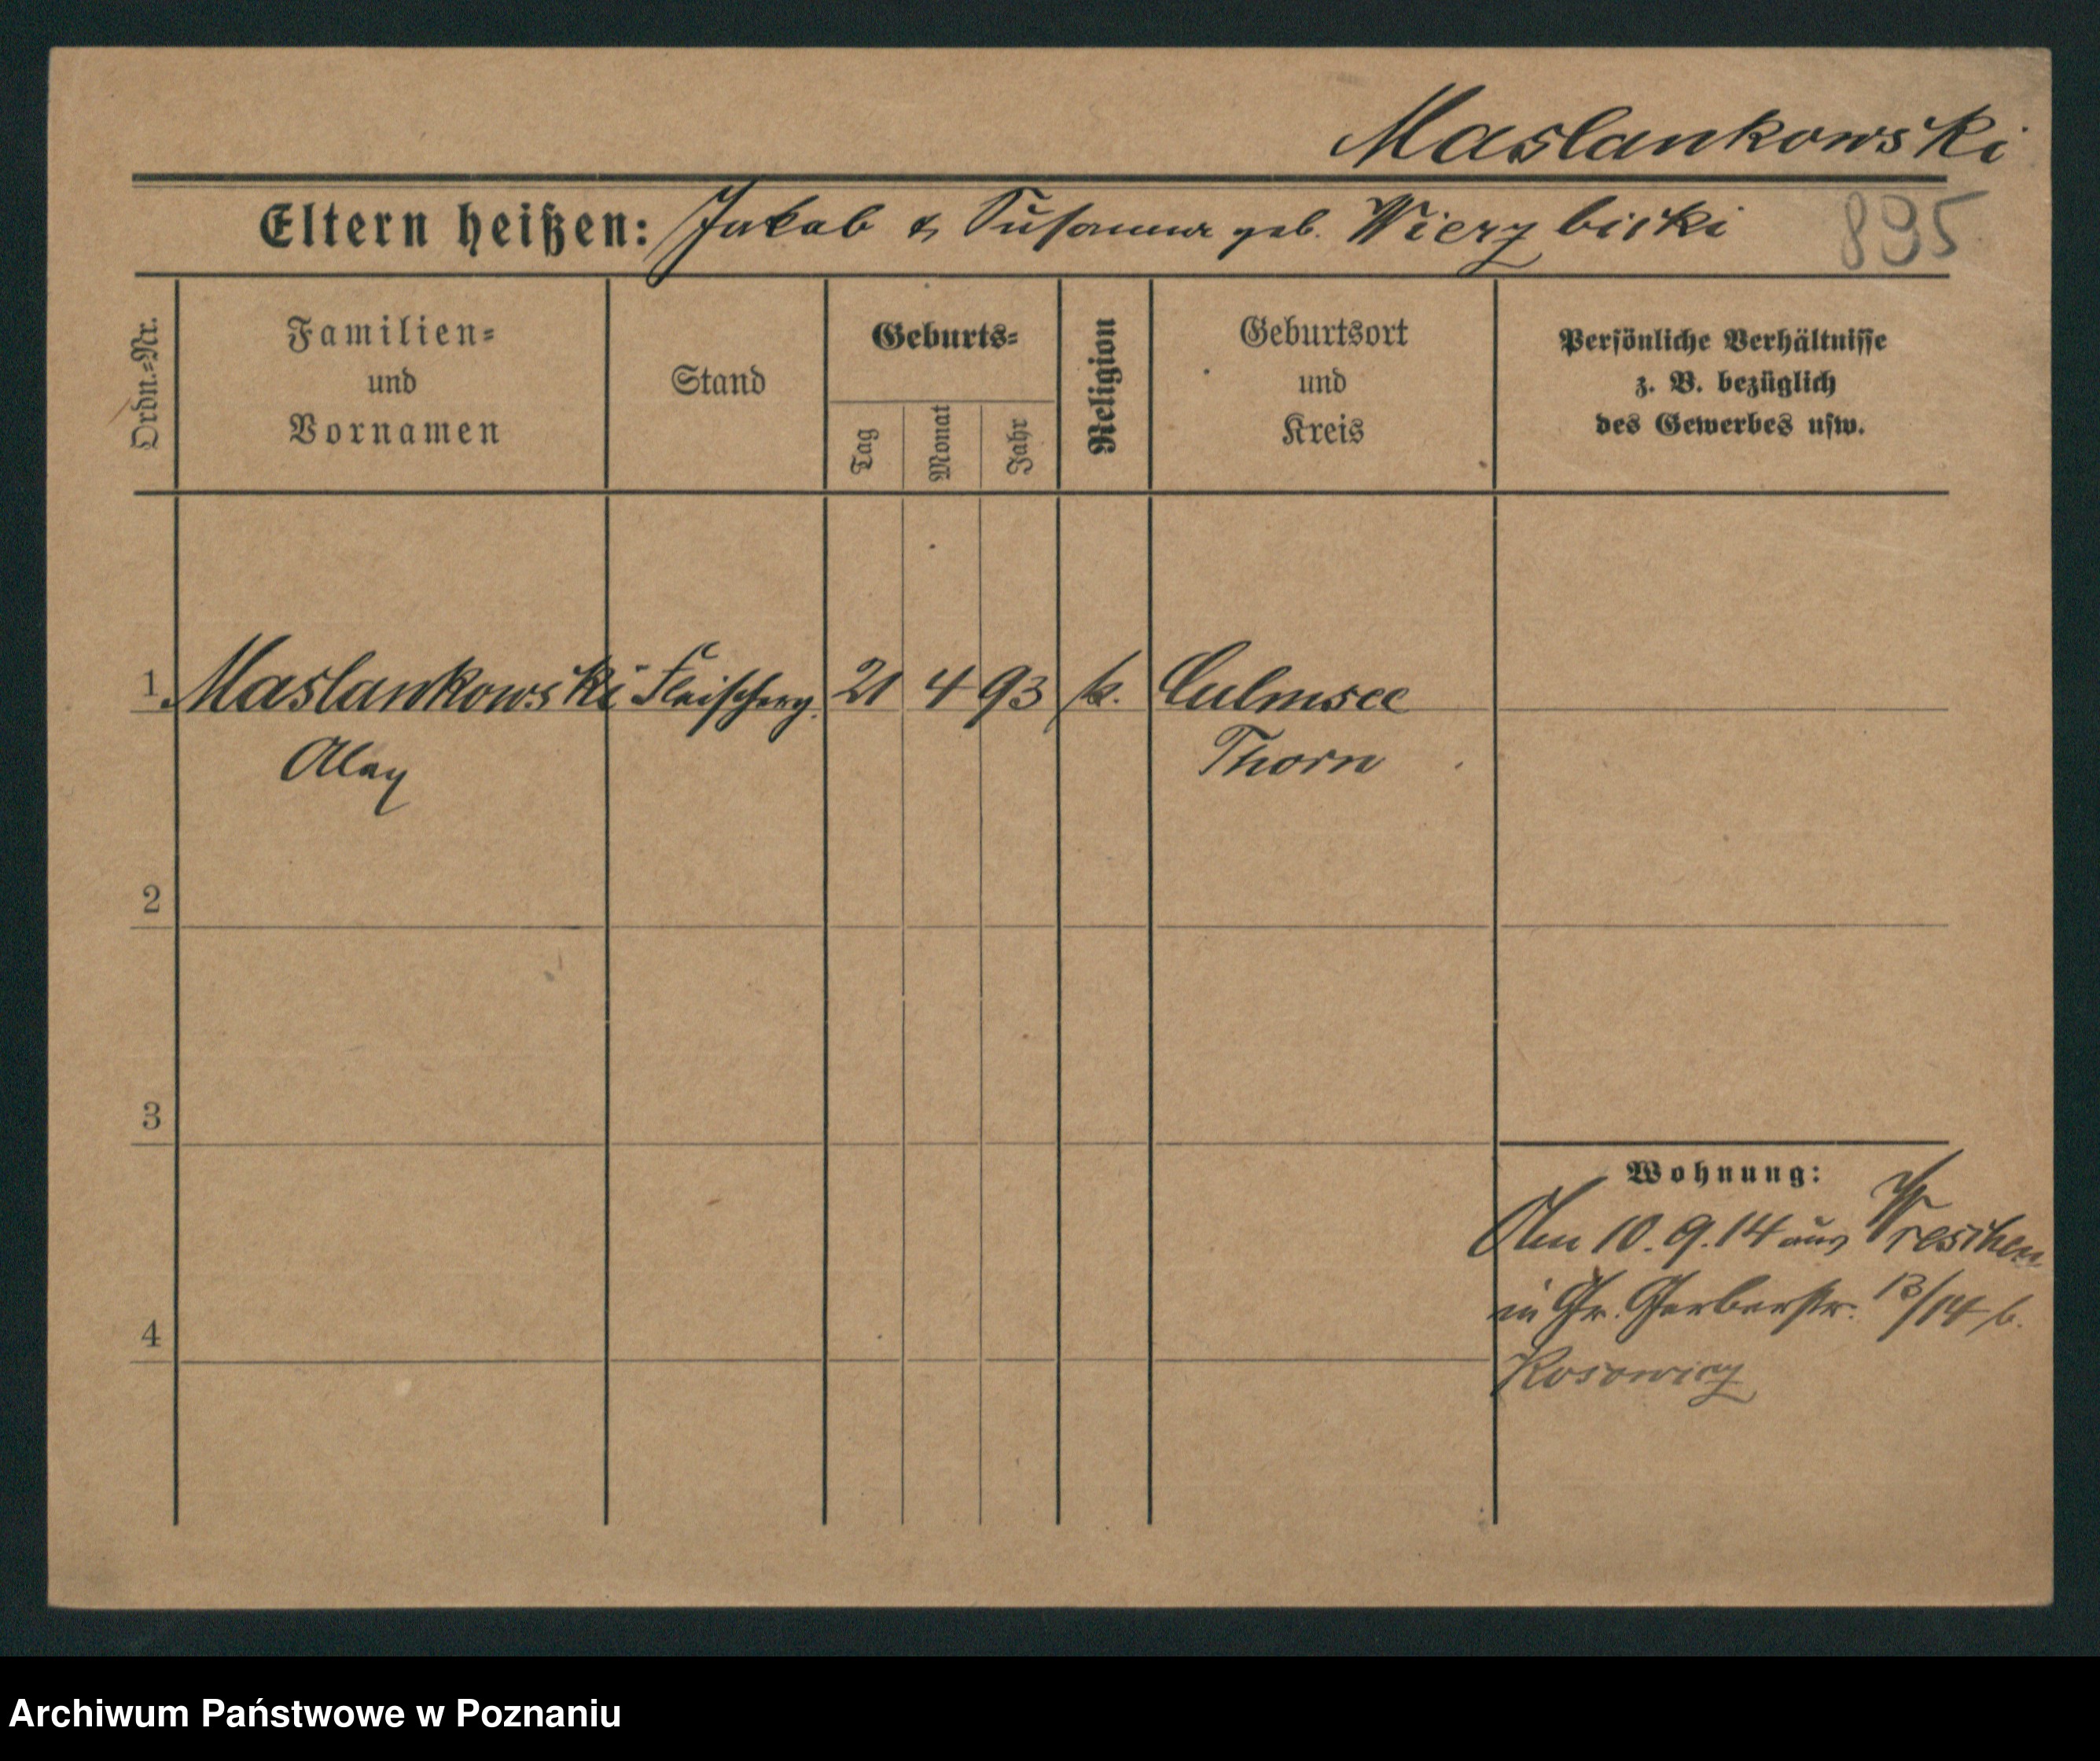 Maslankowski
Eltern heißen: Jakob & Susanna geb. Wierzbicki 895
Ordn.=Nr.
Familien=
und
Vornamen
Stand
Geburts=
Tag
Monat
Jahr
Religion
Geburtsort
und
Kreis
Persönliche Verhältnisse
z. B. bezüglich
des Gewerbes usw.
1 Maslankowski Fleischerg. 21 4 93 k. Culmsee
Thorn
2
3
4
Wohnung:
Am 10.9.14 aus Wreschen
in Gr. Gerberstr. 13/14 b.
Rosowicz
Archiwum Państwowe w Poznaniu